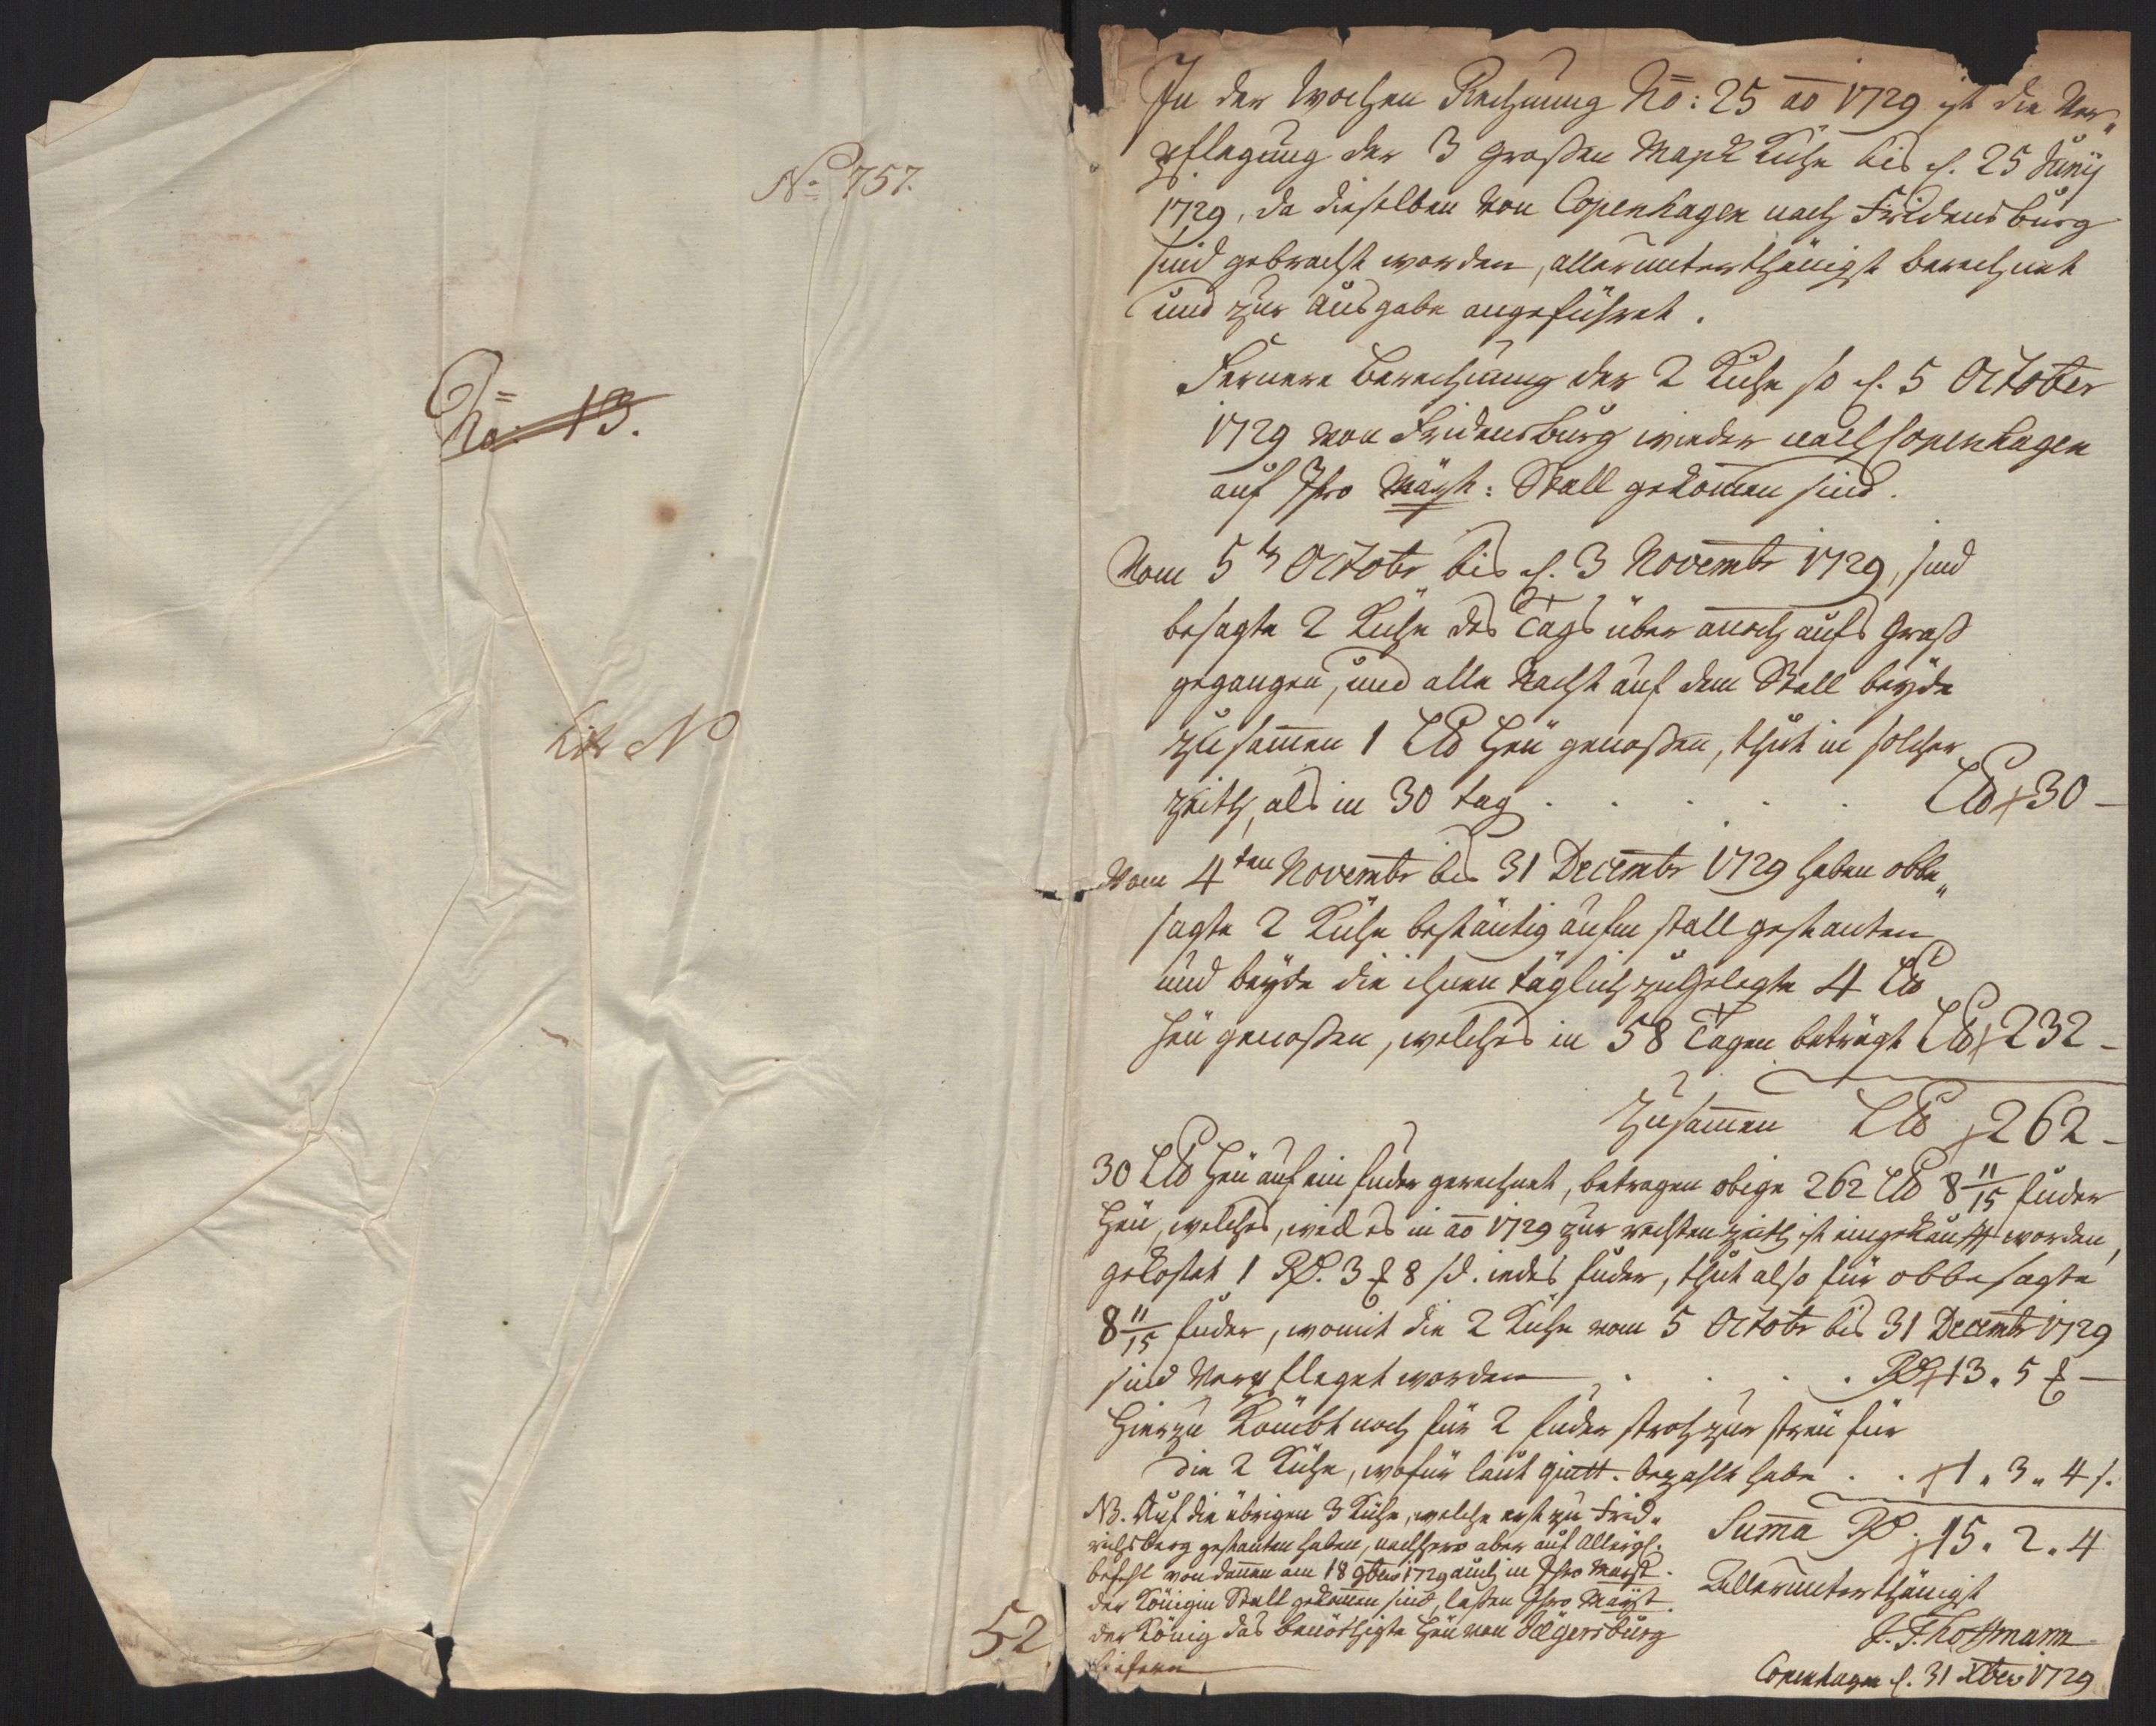 No 757.
No: 13.
Litr N
52
In der Wochen Rechnung No: 25 ao 1729 ist die Ver„
pflegung der 3 großen Kühe bis d. 25 Junij
1729, da dieselben von Copenhagen nach Fridensburg
sind gebracht worden, allerunterthänigst berechnet
und zur Ausgabe angeführet.
Fernere Berechnung der 2 Kühe so d. 5 October
1729 von Fridensburg wieder nach Copenhagen
auf Ihro Mayst: Stall gekom̄en sind.
Vom 5 Octobr bis d. 3 Novembr 1729, sind
besagte 2 Kühe des Tags über annoch aufs Graß
gegangen, und alle Nacht auf dem Stall beyde
zusam̄en 1 L℔ Heü genoßen, thut in solcher
Zeith, als in 30 tag . . . . . L℔ 30 –
Vom 4ten Novembr bis 31 Decembr 1729 haben obbe„
sagte 2 Kühe bestäntig aufm stall gestanten
und beyde die ihnen täglich zugelegte 4 L℔
Heü genoßen, welches in 58 Tagen beträgt L℔ 232 –
Zusam̄en L℔ 262 –
30 L℔ Heü auf ein fuder gerechnet, betragen obige 262 L℔ 8 11/15 fuder
Heü, welches, weil es in ao 1729 zur rechten Zeith ist eingekaufft worden,
gekostet 1 Rd. 3 ℔ 8 sd. iedes fuder, thut also für obbesagte
8 11/15 fuder, womit die 2 Kühe vom 5 Octobr bis 31 Decembr 1729
sind Verpfleget worden . . . . Rd 13 „ 5 ℔ –
Hierzu kömbt noch für 2 fuder stroh zur streü für
die 2 Kühe, wofür laut quitt. bezahlt habe . . 1 „ 3 „ 4 s.
Summa Rd. 15 „ 2 „ 4
NB. Auf die übrigen 3 Kühe, welche erst zu Frid„
richsberg gestanten haben, nachhero aber auf Allergl.
befehl von dannen am 18 9bris 1729 auch in Ihro Mayst.
der Königin Stall gekom̄en sind, laßen Ihro Mayst.
der König das benöthigte Heü von Jægersburg
liefern
Allerunterthänigst
J. F. Hoffmann
Copenhagen d. 31 Xbris 1729